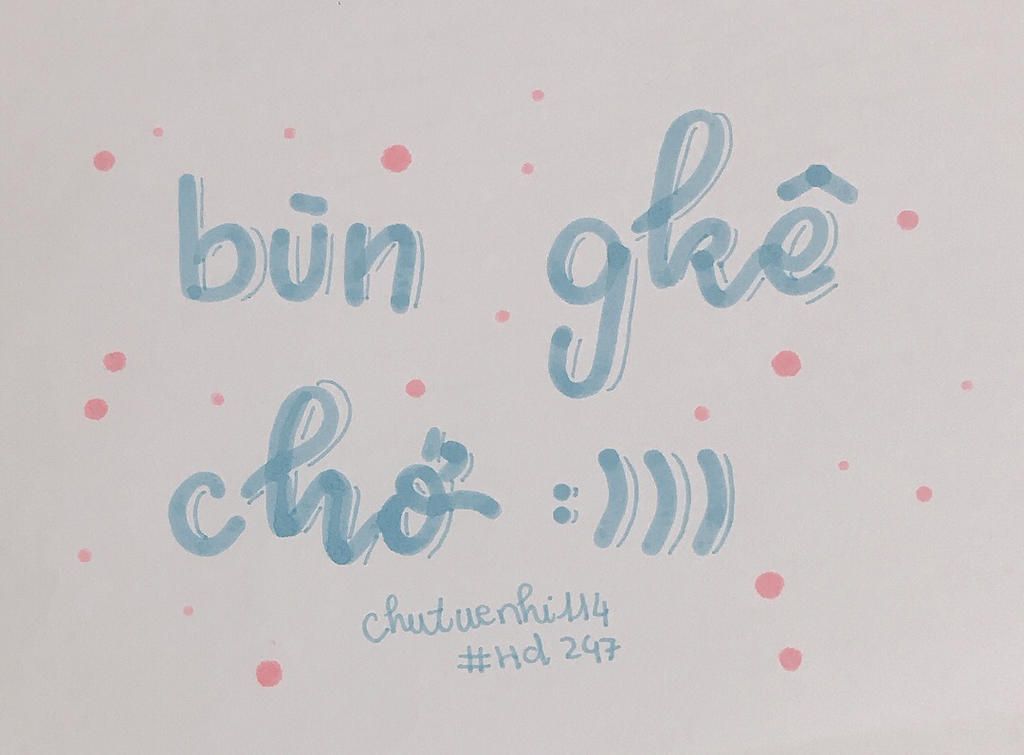 bùn ghê
chớ :))))
chutuenhi114
#Hd 247